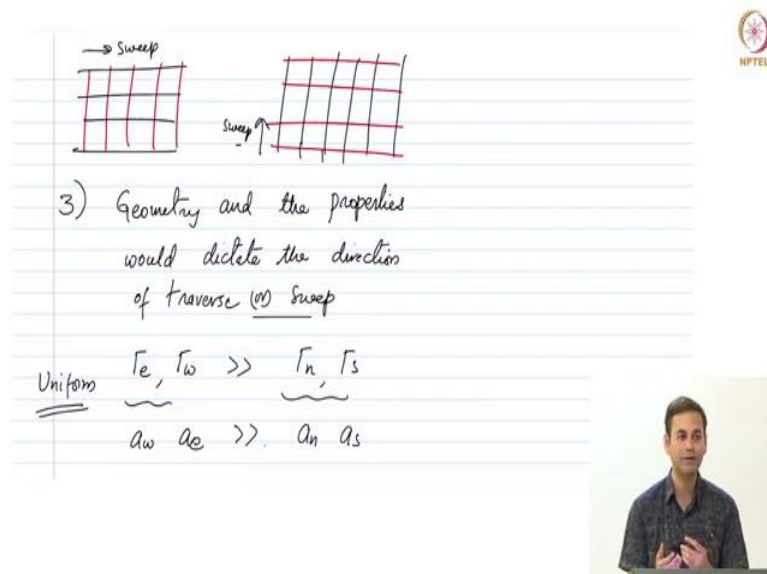 → Sweep
Sweep ↑
NPTEL
3) Geometry and the properties
would dictate the direction
of traverse (or) Sweep
Uniform Γe, Γw >> Γn, Γs
aw ae >>. an as